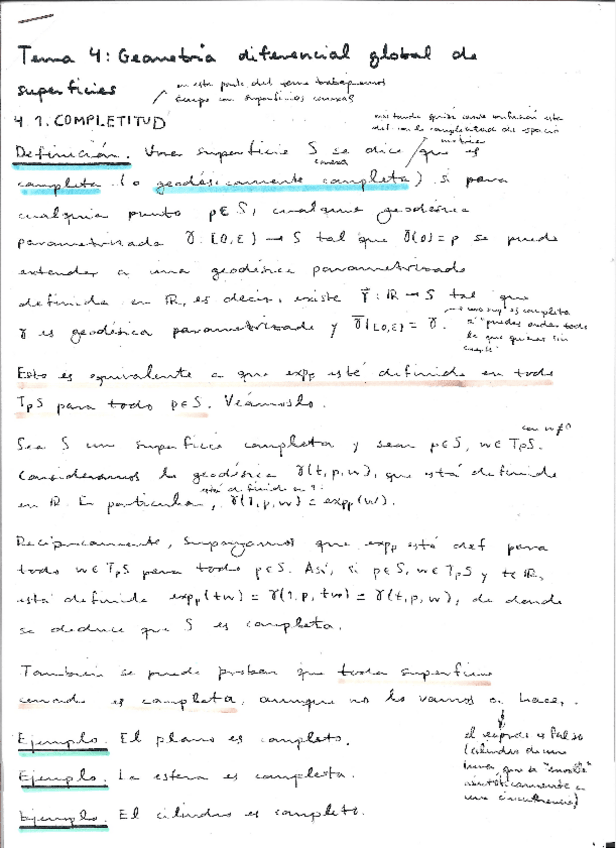 Tema 4: Geometría diferencial global de
superficies
en esta parte del tema trabajaremos
siempre con superficies conexas
4.1. COMPLETITUD
Definición. Una superficie S se dice que es
conexa
completa (o geodésicamente completa) si para
cualquier punto p∈S, cualquier geodésica
parametrizada γ: [0,ε) → S tal que γ(0)=p se puede
extender a una geodésica parametrizada
definida en ℝ, es decir, existe γ̄: ℝ → S tal que
γ es geodésica parametrizada y γ̄|[0,ε) = γ.
Esto es equivalente a que expₚ esté definida en todo
TₚS para todo p∈S. Veámoslo.
con w≠0
Sea S una superficie completa y sean p∈S, w∈TₚS.
Consideramos la geodésica γ(t,p,w), que está definida
está definida en 1:
en ℝ. En particular, γ(1,p,w) = expₚ(w).
Recíprocamente, supongamos que expₚ está def para
todo w∈TₚS para todo p∈S. Así, si p∈S, w∈TₚS y t∈ℝ,
está definida expₚ(tw) = γ(1,p,tw) = γ(t,p,w), de donde
se deduce que S es completa.
También se puede probar que toda superficie
cerrada es completa, aunque no lo vamos a hacer.
el recíproco es falso
(cilindro de una
asintóticamente a
una circunferencia)
Ejemplo. El plano es completo.
Ejemplo. La esfera es completa.
Ejemplo. El cilindro es completo.